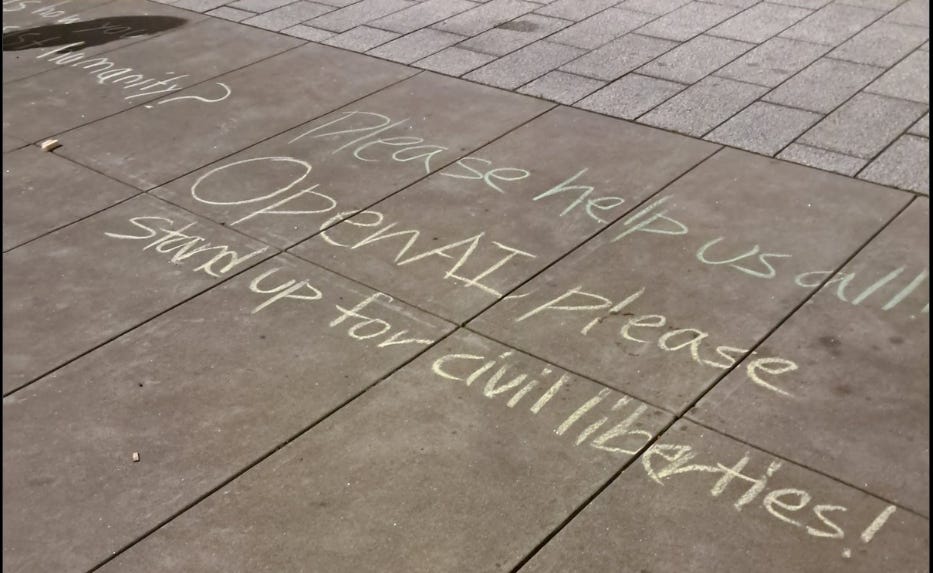 how you
humanity?
Please help us all!
OpenAI please
stand up for civil liberties!